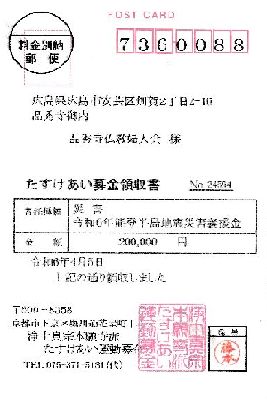 POST CARD
料金別納
郵便
7360088
広島県広島市安芸区畑賀2丁目2-16
品秀寺御内
品秀寺仏教婦人会 様
たすけあい募金領収書
災害
令和6年能登半島地震災害義援金
金額 200,000 円
令和6年4月5日
上記の通り領収しました
〒600-8358
浄土真宗本願寺派
たすけあい運動募金
TEL 075-371-5181(代)